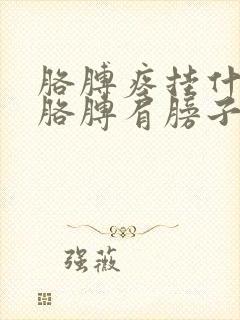 胳膊疼挂什
胳膊肩膀子
强薇